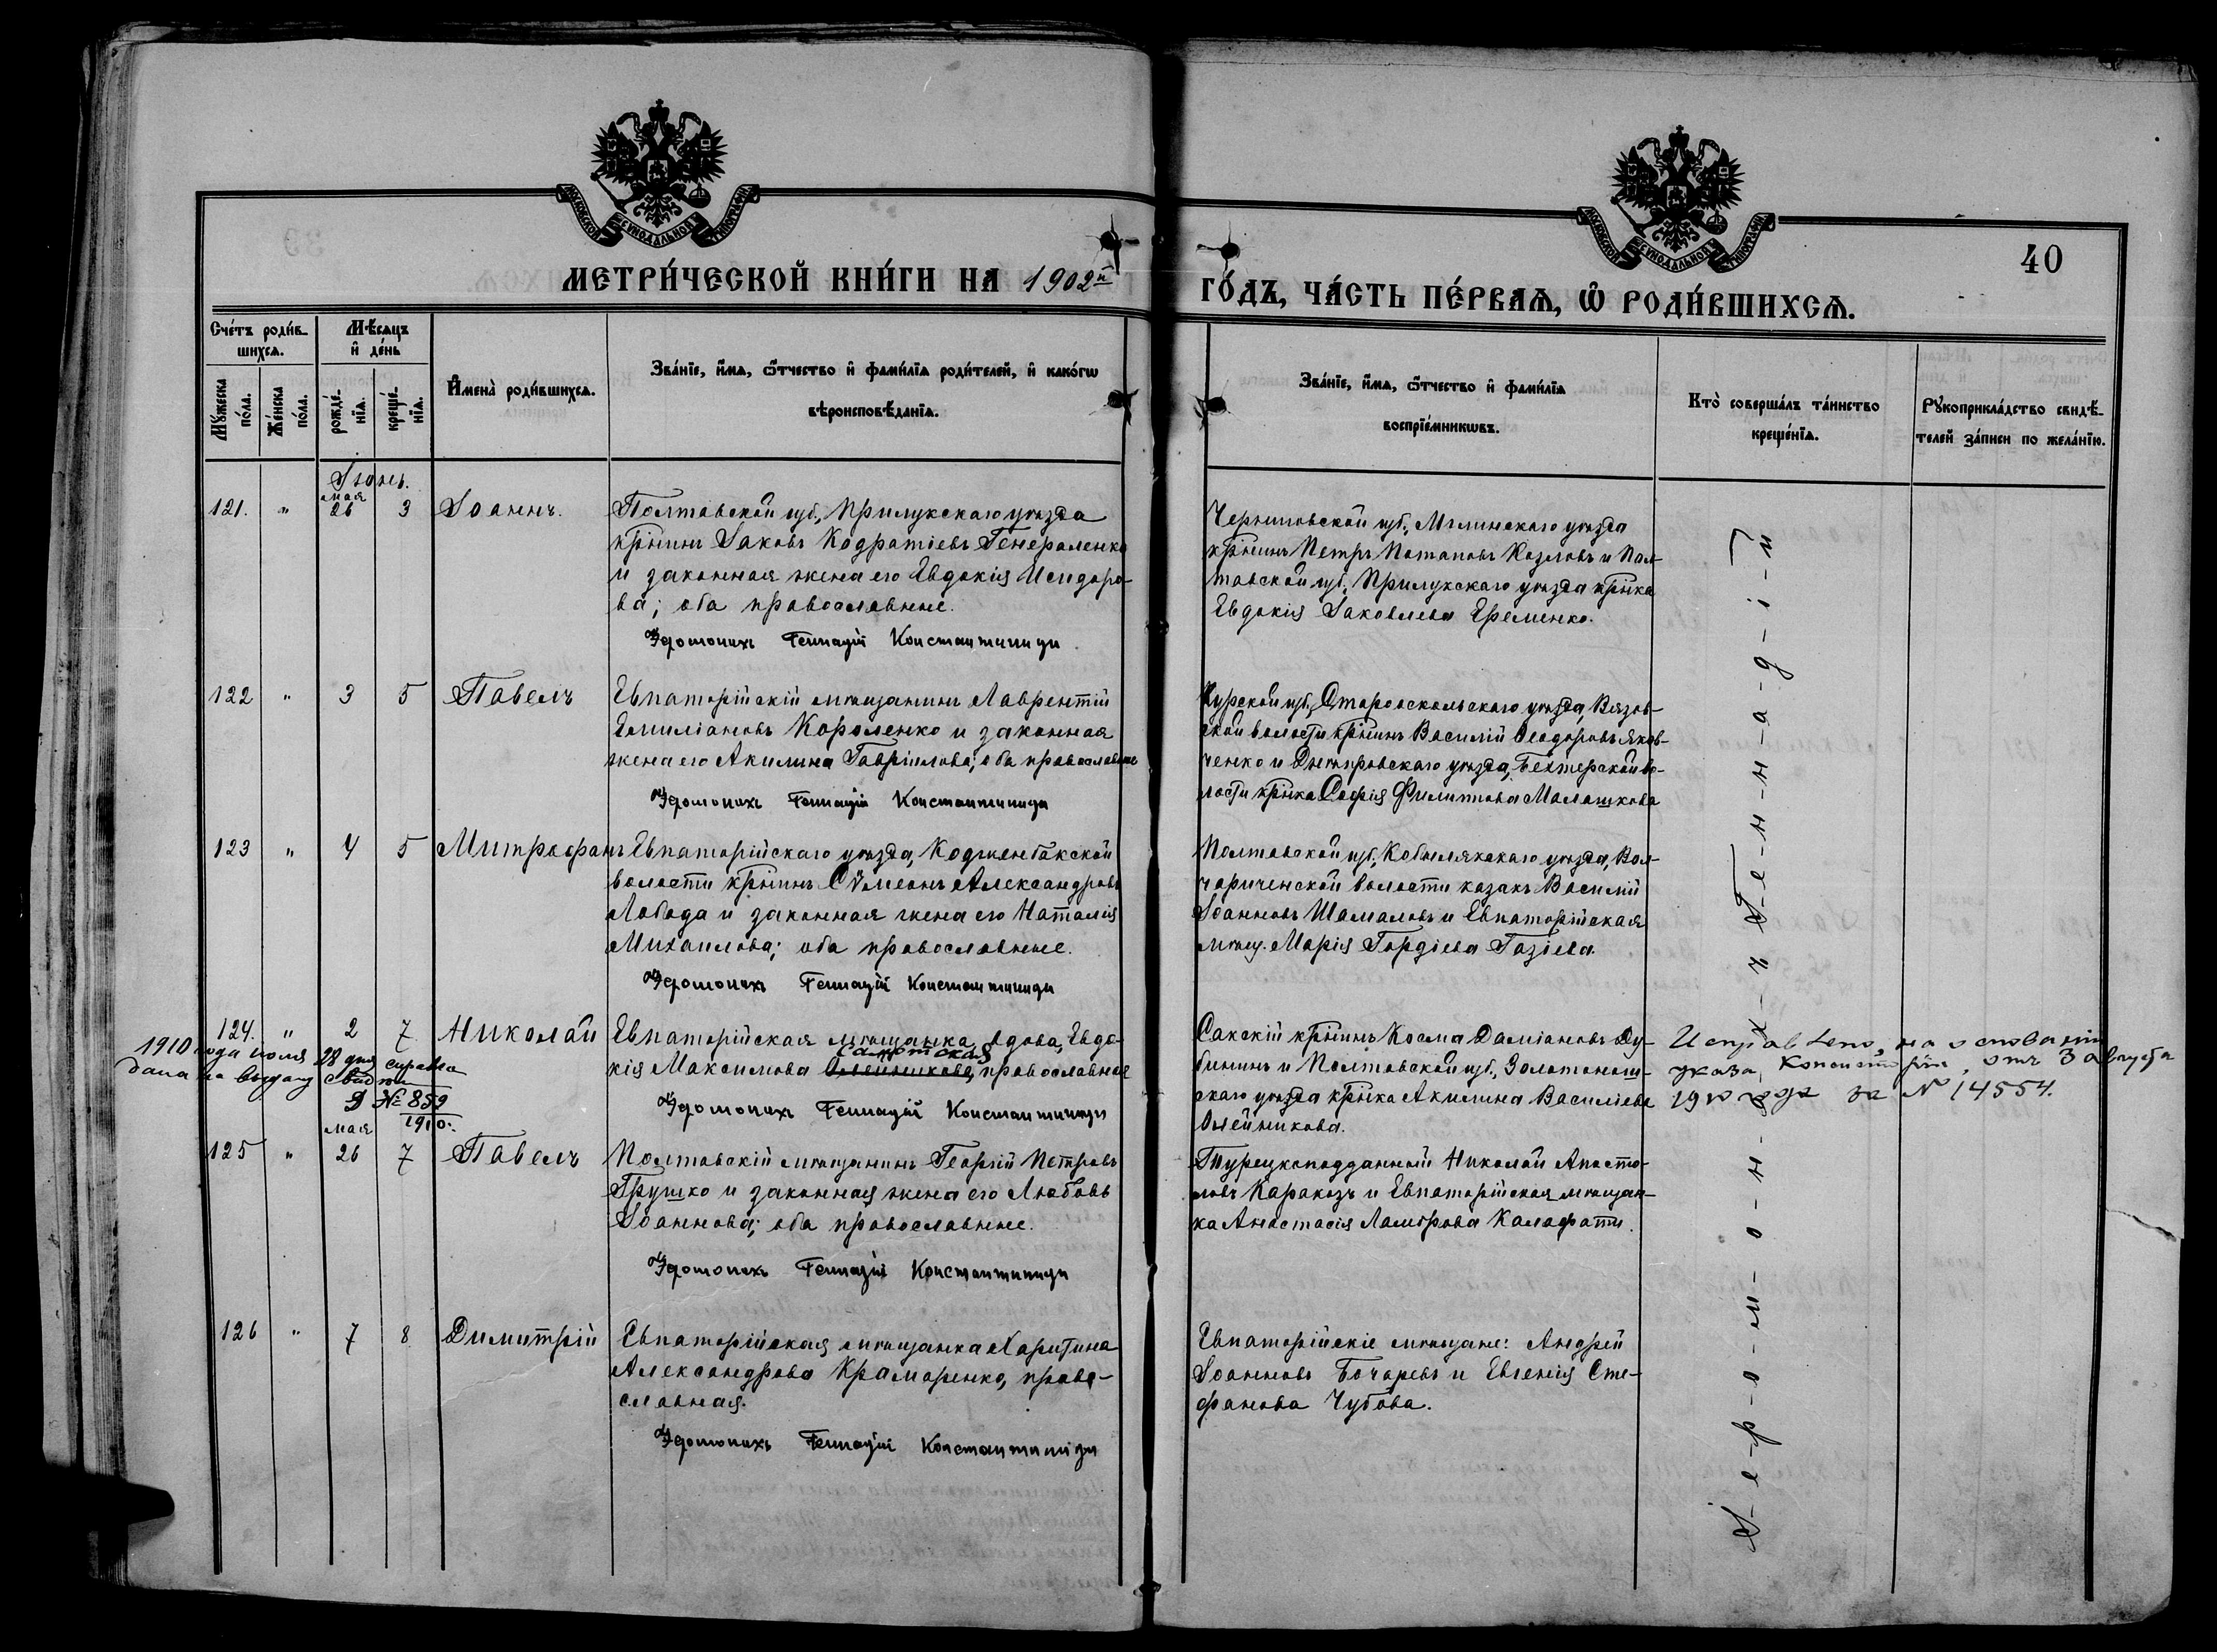 МЕТРИ́ЧЕСКОЙ КНИ́ГИ НА 1902й
ГО́ДЪ, ЧА́СТЬ ПЕ́РВАѦ, Ѡ РОДИ́ВШИХСѦ.
40
Сче́тъ роди́в-
шихсѧ.
Мꙋ́жеска
по́ла.
Же́нска
по́ла.
Мѣ́сѧцъ
и де́нь
рожде́-
нїѧ.
креще́-
нїѧ.
Имена̀ роди́вшихсѧ.
Зва́нїе, и́мѧ, ѻ́тчество и фами́лїѧ роди́телей, и како́гѡ
вѣроисповѣ́данїѧ.
Зва́нїе, и́мѧ, ѻ́тчество и фами́лїѧ
воспрїе́мникѡвъ.
Кто̀ соверша́лъ та́инство
креще́нїѧ.
Рꙋкоприкла́дство свидѣ́-
телей за́писи по жела́нїю.
Іюнь.
мая
121. " 26 3 Іоаннъ.
Полтавской губ., Прилукскаго уѣзда
кр҃нинъ Іаковъ Кодратіевъ Генераленко
и законная жена его Евдокія Исидоро-
ва; оба православные.
Іеромонахъ Геннадій Константиниди
Черниговской губ., Мглинскаго уѣзда
кр҃нинъ Петръ Потаповъ Козловъ и Пол-
тавской губ., Прилукскаго уѣзда кр҃нка
Евдокія Іаковлева Еременко.
122 " 3 5 Павелъ
Евпаторійскій мѣщанинъ Лаврентій
Емиліановъ Короленко и законная
жена его Акилина Гавріилова; оба православные
Іеромонахъ Геннадій Константиниди
Курской губ., Старооскольскаго уѣзда, Вязов-
ской волости кр҃нинъ Василій Ѳеодоровъ Яков-
ченко и Днѣпровскаго уѣзда, Бехтерской во-
лости кр҃нка Софія Филиппова Малашкова
123 " 4 5 Митрофанъ
Евпаторійскаго уѣзда, Кодженбакской
волости кр҃нинъ Сѵмеонъ Александровъ
Лобода и законная жена его Наталія
Михаилова; оба православные.
Іеромонахъ Геннадій Константиниди
Полтавской губ., Кобелякскаго уѣзда, Вол-
чариченской волости казакъ Василій
Іоанновъ Шамаловъ и Евпаторійская
мѣщ. Марія Гордіева Газіева.
124. " 2 7 Николай
Евпаторійская мѣщанка, вдова, Евдо-
кія Максимова Олейникова, православная
1910 года іюля 28 дня справка
дана на выдачу свид
№ 859
1910.
Іеромонахъ Геннадій Константиниди
Сакскій кр҃нинъ Косма Даміановъ Ду-
бининъ и Полтавской губ., Золотонош-
скаго уѣзда кр҃нка Акилина Василіева
Олейникова.
Исправлено, на основаніи
указа, Консисторіи, отъ 3 августа
1910 года за № 14554.
мая
125 " 26 7 Павелъ
Полтавскій мѣщанинъ Георгій Петровъ
Грушко и законная жена его Любовь
Іоаннова; оба православные.
Іеромонахъ Геннадій Константиниди
Турецкоподданный Николай Апосто-
ловъ Каракозъ и Евпаторійская мѣщан-
ка Анастасія Ламброва Калафати.
126 " 7 8 Димитрій
Евпаторійская мѣщанка Харитина
Александрова Крамаренко, право-
славная.
Іеромонахъ Геннадій Константиниди
Евпаторійскіе мѣщане: Андрей
Іоанновъ Бочаревъ и Евгенія Сте-
фанова Чубова.
І-е-р-о-м-о-н-а-х-ъ Г-е-н-н-а-д-і-й